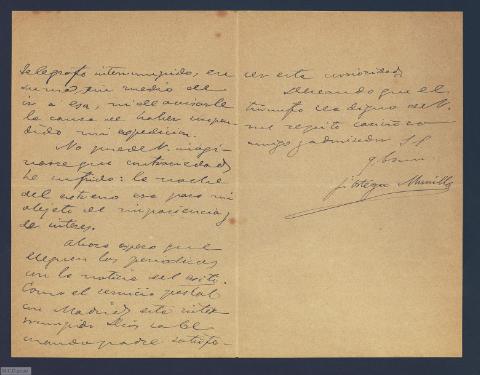 telegrafo interrumpido, en
suma, sin medio de
ir a esa, ni de avisarle
la causa de haber suspen-
dido mi expedicion.
No puede V. imagi-
narse que contrariedad
he sufrido: la noche
del estreno era para mi
objeto de impaciencia y
de interes.
Ahora espero que
lleguen los periodicos
con la noticia del exito.
Como el servicio postal
con Madrid esta inter
rumpido Dios sabe
cuando podre satisfa-
cer esta curiosidad.
Deseando que el
triunfo sea digno de V.
me repito cariñoso
amigo y admirador S.S.
q.b.s.m.
J. Ortega Munilla